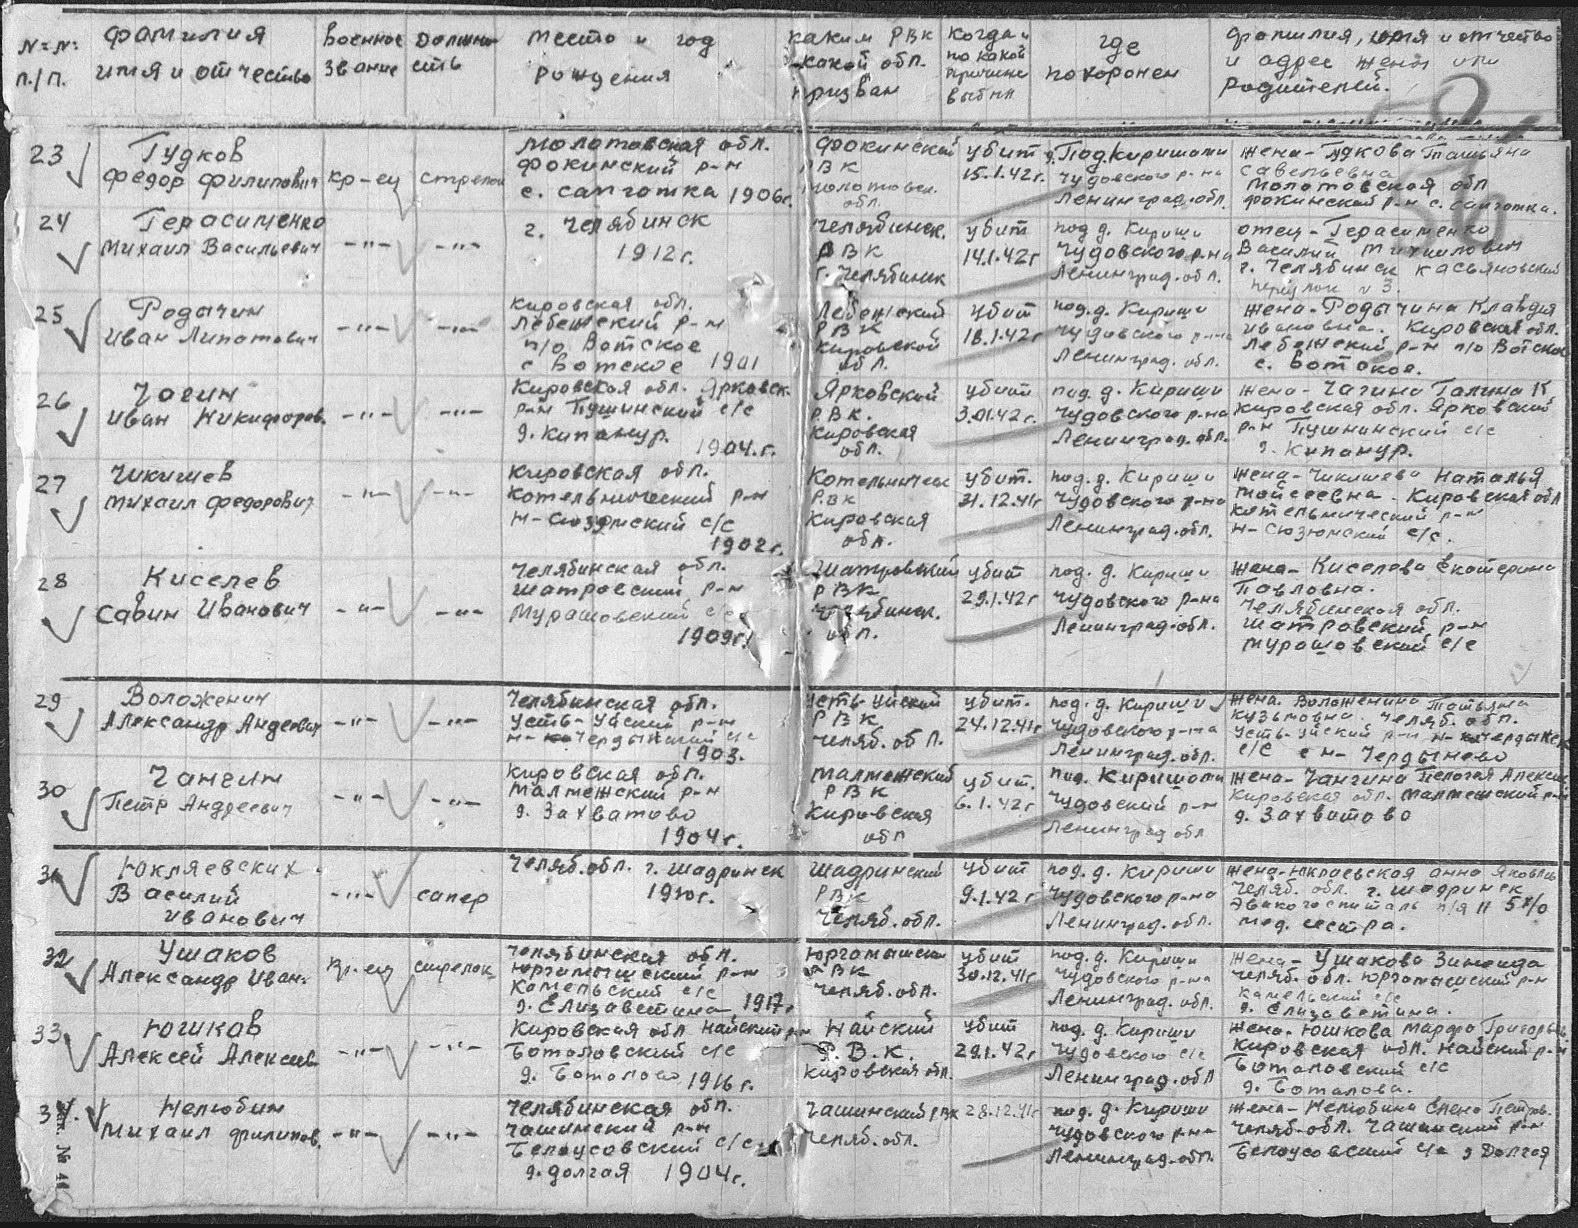 №=№: п./п.
фамилия имя и отчество
военное звание
должность
место и год рождения
каким РВК какой обл. призван
когда и по какой причине выбыл
где похоронен
фамилия, имя и отчество и адрес жены или родителей.
23
Гудков
Федор Филипович
кр-ец
стрелок
Молотовская обл.
Фокинский р-н
с. Сапготка 1906г.
Фокинский
РВК
Молотовск.
обл.
убит
15.1.42г.
д. Под Киришами
Чудовского р-на
Ленинград. обл.
жена - Гудкова Татьяна
Савельевна
Молотовская обл
Фокинский р-н с. Сапготка.
24
Герасименко
Михаил Васильевич
-"-
-"-
г. Челябинск
1912г.
Челябинск.
РВК
г. Челябинск
убит
14.1.42г
под д. Кириши
Чудовского р-на
Ленинград. обл.
отец - Герасименко
Василий Михайлович
г. Челябинск Касьяновский
переулок № 3.
25
Родачин
Иван Липатович
-"-
-"-
Кировская обл.
Лебежский р-н
п/о Вотское
с Вотское 1901
Лебежский
РВК
Кировской
обл.
убит
18.1.42г
под. д. Кириши
Чудовского р-на
Ленинград. обл.
жена - Родычина Клавдия
Ивановна. Кировская обл.
Лебежский р-н п/о Вотское
с. Вотское.
26
Чагин
Иван Никифоров.
-"-
-"-
Кировская обл. Ярковск.
р-н Пушинский с/с
д. Кипанур.
1904.г.
Ярковский
РВК.
Кировская
обл.
убит
3.01.42г.
под. д. Кириши
Чудовского р-на
Ленинград. обл.
жена - Чагина Галина К
Кировская обл. Ярковский
р-н Пушнинский с/с
д. Кипанур.
27
Чикишев
Михаил Федорович
-"-
-"-
Кировская обл.
Котельнический р-н
Н-Сюзюмский с/с
1902г.
Котельническ
РВК
Кировская
обл.
убит.
31.12.41г
под. д. Кириши
Чудовского р-на
Ленинград. обл.
жена - Чикишева Наталья
Мойсеевна. Кировская обл
Котельнический р-н
Н-Сюзюмский с/с.
28
Киселев
Савин Иванович
-"-
-"-
Челябинская обл.
Шатровский р-н
Мурашовский с/с
1909г.
Шатровский
РВК
Челябинск.
обл.
убит
29.1.42г
под. д. Кириши
Чудовского р-на
Ленинград. обл.
жена - Киселева Екатерина
Павловна.
Челябинская обл.
Шатровский р-н
Мурашовский с/с
29
Воложенин
Александр Андеевич
-"-
-"-
Челябинская обл.
Усть-Уйский р-н
Н-Чердынский с/с
1903.
Усть-Уйский
РВК
Челяб. обл.
убит.
24.12.41г
под. д. Кириши
Чудовского р-на
Ленинград. обл.
жена. Воложенина Татьяна
Кузьмовна. Челяб. обл.
Усть-Уйский р-н Н-Чердынск
с/с с Н-Чердынево
30
Чангин
Петр Андреевич
-"-
-"-
Кировская обл.
Малмежский р-н
д. Захватово
1904г.
Малмежский
РВК
Кировская
обл
убит.
6.1.42г
под. Киришами
Чудовский р-н
Ленинград обл
жена - Чангина Пелагея Алексее
Кировская обл. Малмежский р-н
д. Захватово
31
Юкляевских
Василий
Иванович
-"-
сапер
Челяб. обл. г. Шадринск
1910г.
Шадринский
РВК
Челяб. обл.
убит
9.1.42г
под. д. Кириши
Чудовского р-на
Ленинград. обл.
жена - Юкраевская Анна Яковль
Челяб. обл. г. Шадринск
Эвакогоспиталь
мед. сестра.
32
Ушаков
Александр Иван.
кр-ец
стрелок
Челябинская обл.
Юргамышский р-н
Камельский с/с
д. Елизаветина 1917г
Юргамышский
РВК
Челяб. обл.
убит
30.12.41г
под. д. Кириши
Чудовского р-на
Ленинград. обл.
жена - Ушакова Зинаида
Челяб. обл. Юргамышский р-н
Камельский с/с
д. Елизаветина.
33
Юшков
Алексей Алексеев
-"-
-"-
Кировская обл Найский р-н
Боталовский с/с
д. Боталово 1916г.
Найский
Р.В.К.
Кировская обл.
убит
29.1.42г
под. д. Кириши
Чудовского с/с
Ленинград. обл
жена - Юшкова Марфа Григорьев
Кировская обл. Найский р-н
Боталовский с/с
д. Боталова.
34.
Нелюбин
Михаил Филипов.
-"-
-"-
Челябинская обл.
Чашинский р-н
Белоусовский с/с
д. Долгая 1904г.
Чашинский РВК
Челяб. обл.
28.12.41г
под. д. Кириши
Чудовского р-на
Ленинград. обл.
жена - Нелюбина Елена Петров.
Челяб. обл. Чашинский р-н
Белоусовский с/с д Долгая